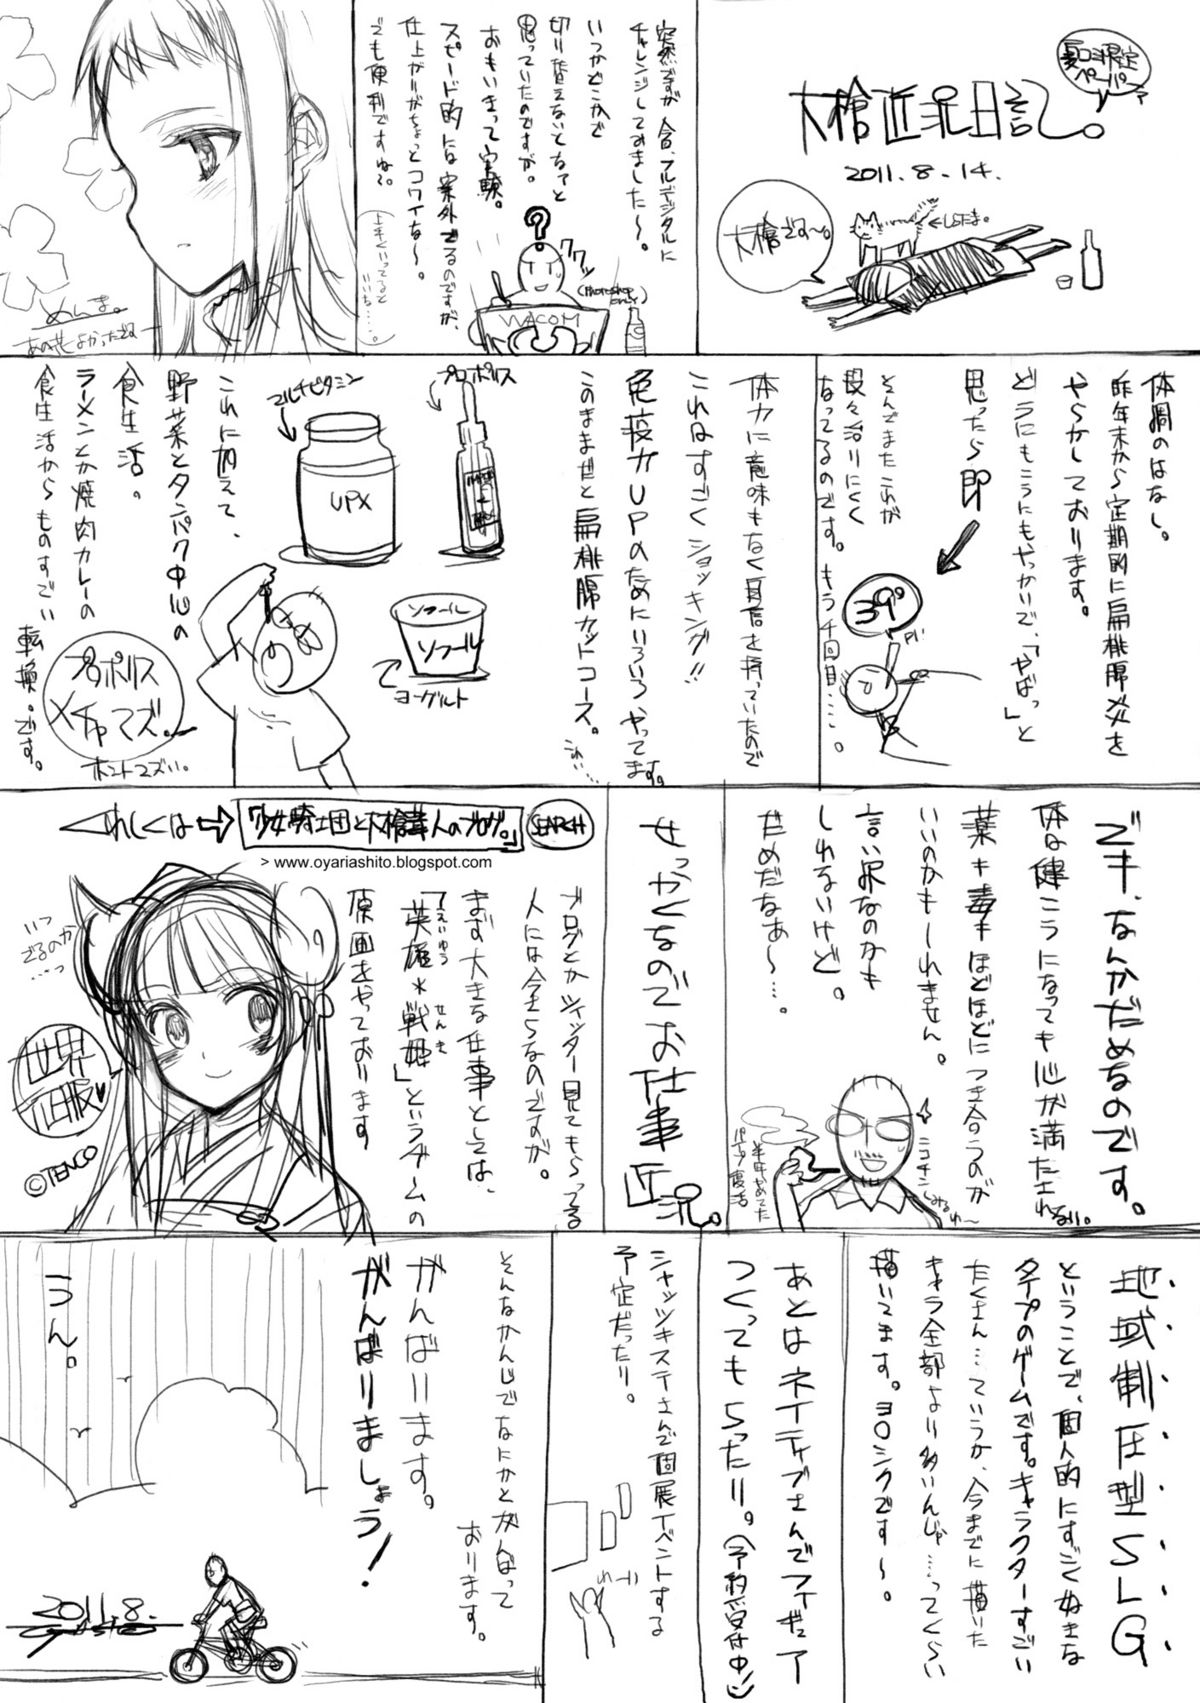 夏コミ限定
ペーパー
大槍近況日記。
2011.8.14.
大槍でス〜。
←しらたま。
突然ですが今回、フルデジタルに
チャレンジしてみました〜。
いつかどこかで
切り替えないとなァと
思っていたのですが。
おもいきって実験。
スピード的には案外でるのですが、
仕上がりがちょっとコワイな〜。
でも便利ですねぇ。
上手くいってると
いいナ……。
?
(Photoshop
only)
WACOM
めんま。
あの花よかったでね
体調のはなし。
昨年末から定期的に扁桃腺炎を
やらかしております。
どうにもこうにもやっかいで、「やばっ」と
思ったら即
39°
Pi!
そんでまたこれが
段々治りにくく
なってるのです。もう4回目……。
体力に意味もなく自信を持っていたので
これはすごくショッキング!!
免疫力UPのためにいろいろやってます。
このままだと扁桃腺カットコース。
こわい…。
プロポリス
マルチビタミン
UPX
ソフール
ソフール
ヨーグルト
これに加えて、
野菜とタンパク中心の
食生活。
ラーメンとか焼肉カレーの
食生活からものすごい
転換。です。
プロポリス
メチャマズ。
ホントマズい。
でキ、なんかだめなのです。
体は健こうになっても心が満たされない。
薬キ毒キほどほどにつき合うのが
いいのかもしれません。
言い訳なのかも
しれないけど。
だめだなあ〜…。
ニコチン
半年やめてた
パイプ復活
せっかくなのでお仕事近況。
くわしくは→「少女騎士団と大槍葦人のブログ。」
SEARCH
> www.oyariashito.blogspot.com
ブログとかツイッター見てもらってる
人には今さらなのですが。
まず大きな仕事としては、
「英雄＊戦姫」というゲームの
えいゆう
せんき
原画をやっております
いつ
でるのか
…っ
世界
征服♥
©TENCO
地域制圧型SLG
ということで、個人的にすごく好きな
タイプのゲームです。キャラクターすごい
たくさん…ていうか、今までに描いた
キャラ全部より多いんじゃ…ってくらい
描いてます。ヨロシクです〜。
あとはネイティブさんでフィギュア
つくってもらったり。(予約受付中!)
シャッツキステさんで個展イベントする
予定だったり。
わーい
そんなかんじでなにかとがんばって
おります。
がんばります。
がんばりましょう!
うん。
2011.8.